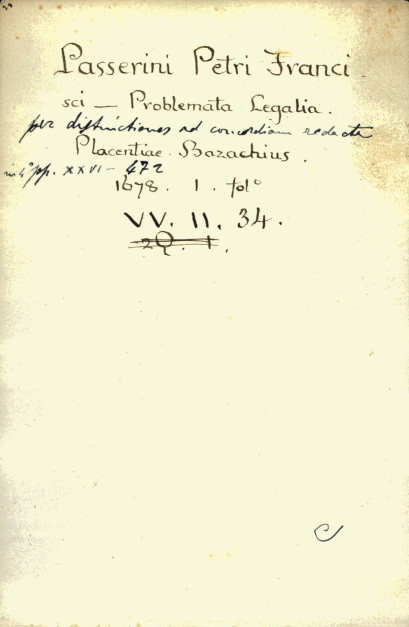 Passerini Petri Franci
sci — Problemata Legalia.
per distinctiones ad concordiam redacta
Placentiae. Bazachius.
in 4° pp. XXVI - 472
1678. 1. fol°
VV. II. 34.